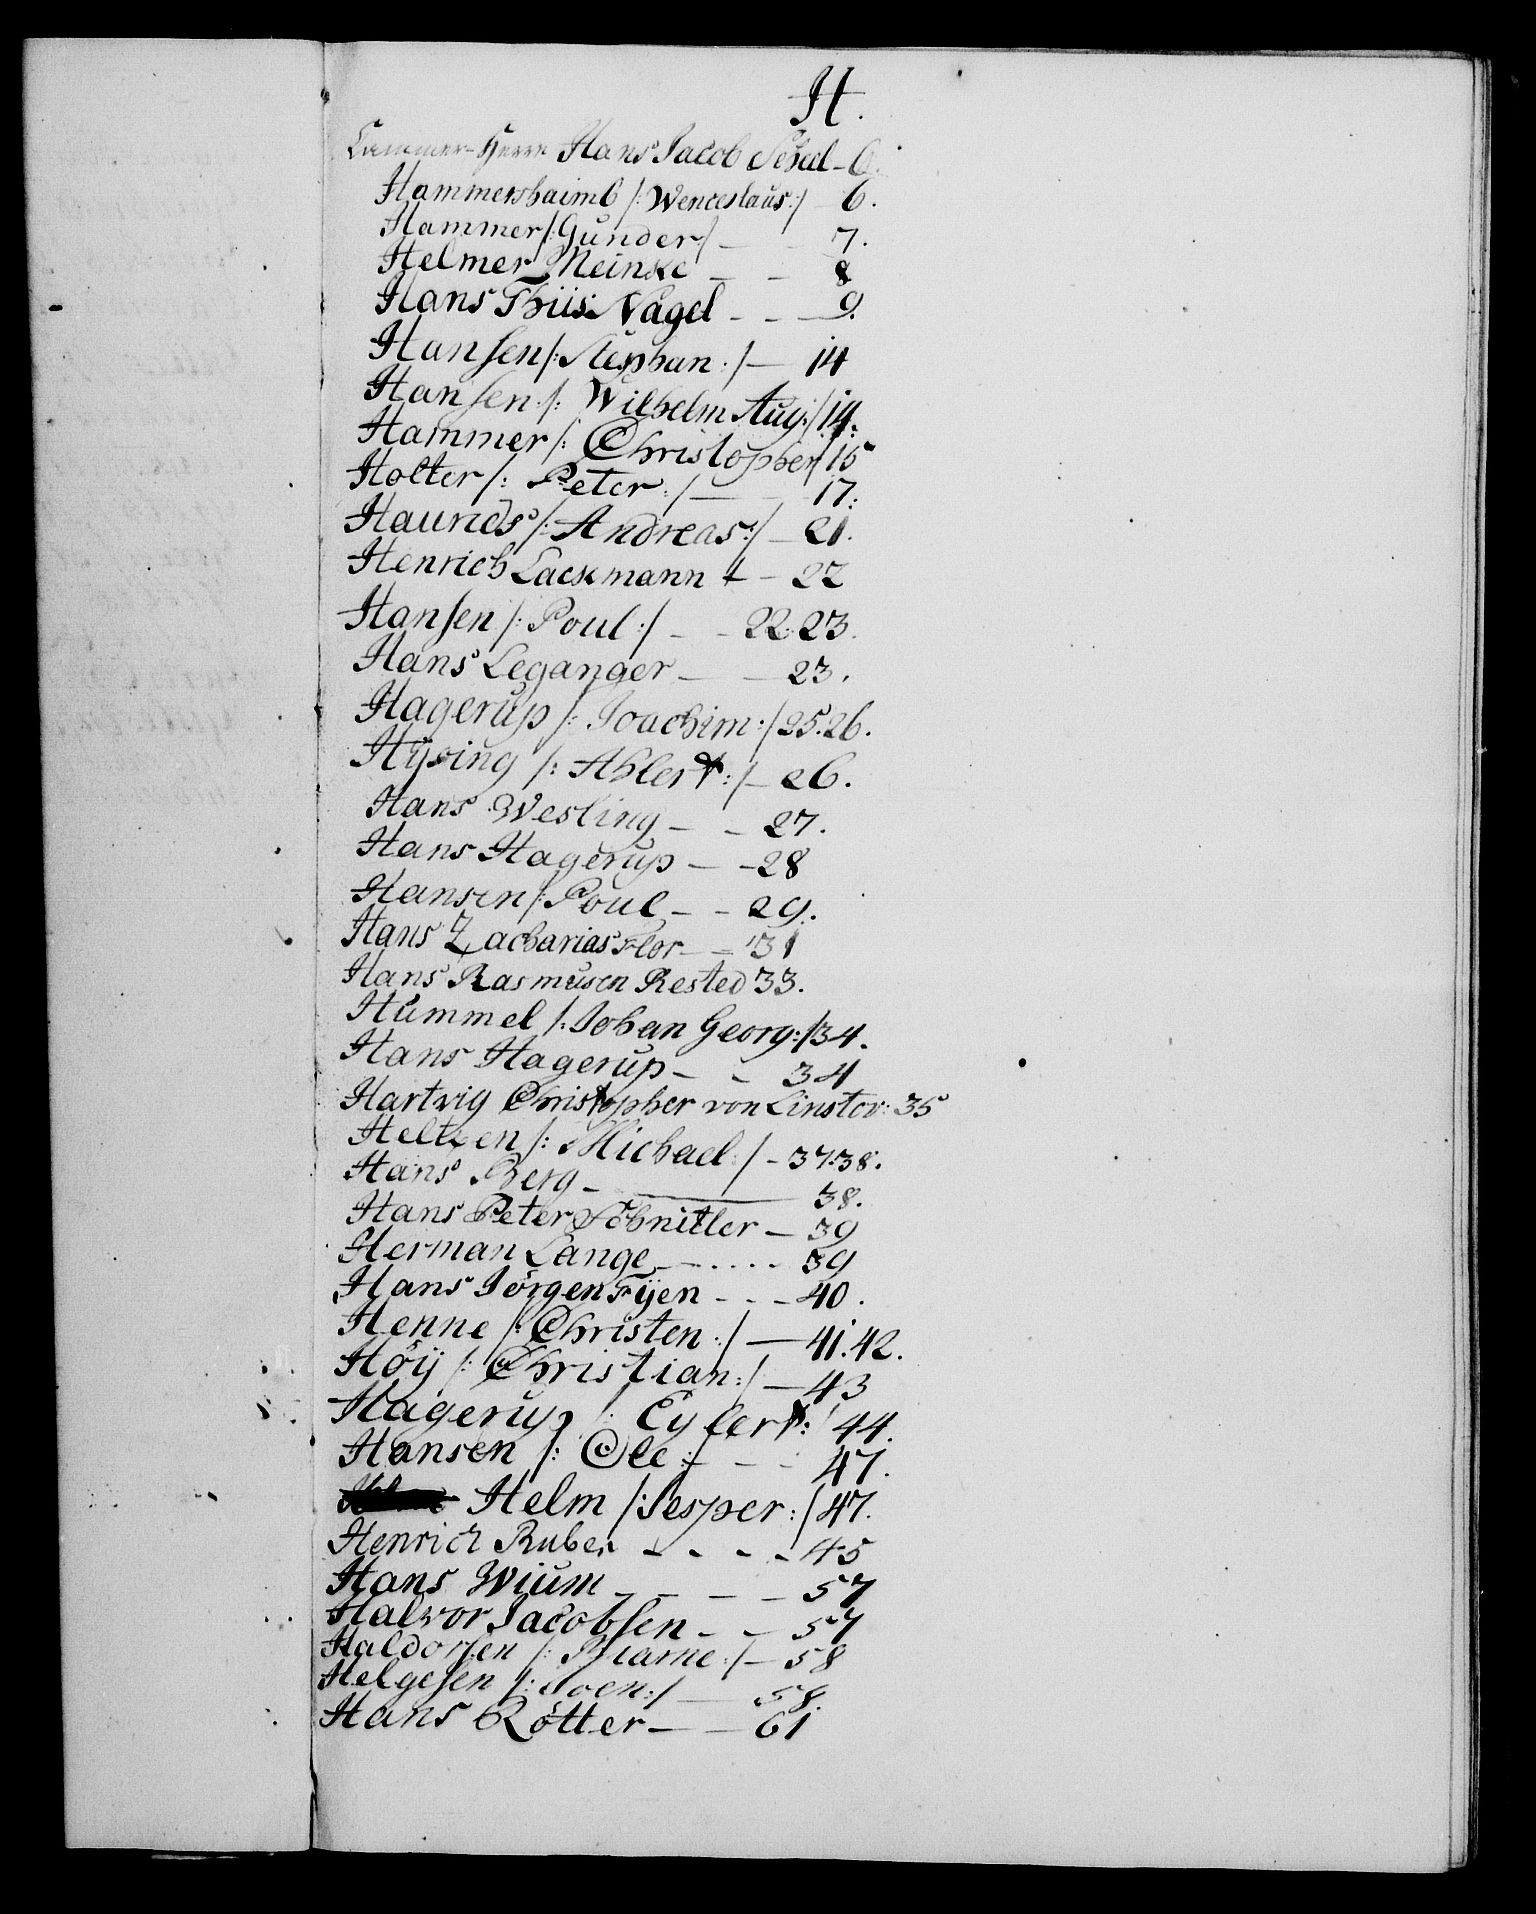 H.
Cammer-Herre Hans Jacob Scheel - 6.
Hammershaimb /: Wenceslaus :/ 6.
Hammer /: Gunder :/ - - 7.
Helmer Meinke - - 8
Hans Thiis Nagel - - 9.
Hansen /: Stephan :/ - 14
Hansen /: Wilhelm Aug: / 14.
Hammer /: Christopher / 15
Holter /: Peter :/ - - 17.
Haurids /: Andreas :/ - 21.
Henrich Lackmann - 22
Hansen /: Poul :/ - - 22. 23.
Hans Leganger - - 23.
Hagerup /: Joachim :/ 25. 26.
Hysing /: Ahlert :/ - 26.
Hans Wesling - - 27.
Hans Hagerup - - 28
Hansen /: Poul - - 29.
Hans Zacharias Flor - = 31
Hans Rasmusen Rested 33.
Hummel /: Johan Georg :/ 34.
Hans Hagerup - - 34
Hartvig Christopher von Linstov: 35
Heltzen /: Michael :/ - 37. 38.
Hans Berg - - 38.
Hans Peter Schnitler - 39
Herman Lange - . . . . 39
Hans Jørgen Fÿen - - - 40.
Henne /: Christen :/ - 41. 42.
Høÿ /: Christian :/ - 43
Hagerup /: Eylert :/ 44.
Hansen /: Ole :/ - - 47.
Helm /: Jesper :/ 47.
Henrich Ruber - - - - 45
Hans Wium - - - - 57
Halvor Jacobsen - - 57
Haldorsen /: Biarne :/ - 58
Helgesen /: Joen :/ - 58.
Hans Røtter - - 61